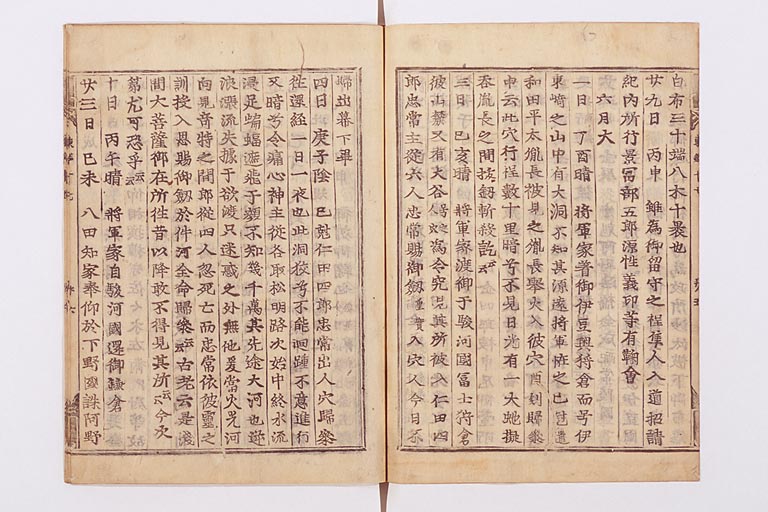 白布三十端八木十褁也
廿九日 丙申 雖爲御留守之程隼人入道招請
紀内所行景冨部五郎源性義印等有鞠會
六月大
一日 丁酉晴 將軍家著御伊豆奥狩倉而号伊
東崎之山中有大洞不知其源遠將軍恠之巳尅遣
和田平太胤長被見之胤長擧火入彼穴酉刻歸參
申云此穴行程數十里暗兮不見日光有一大虵擬
吞胤長之間拔釼斬殺訖云々
三日 己亥晴 將軍家渡御于駿河國冨士狩倉
彼山麓又有大谷 爲令究見其所被入仁田四
郎忠常主從六人忠常賜御釼重寶入人穴今日不
歸出幕下畢
四日 庚子陰 巳尅仁田四郎忠常出人穴歸參
往還經一日一夜也此洞狹兮不能廻踵不意進行
又暗兮令痛心神主從各取松明路次始中終水流
浸足蝙蝠遮飛于顔不知幾千萬其先途大河也逆
浪漲流失據于欲渡只迷惑之外無他爰當火光河
向見奇特之間郎從四人忽死亡而忠常依彼靈之
訓授入恩賜御釼於件河全命歸參云々古老云是淺
間大菩薩御在所往昔以降敢不得見其所云々今次
第尤可恐乎云々
十日 丙午晴 將軍家自駿河國還御鎌倉
廿三日 己未 八田知家奉仰於下野國誅阿野